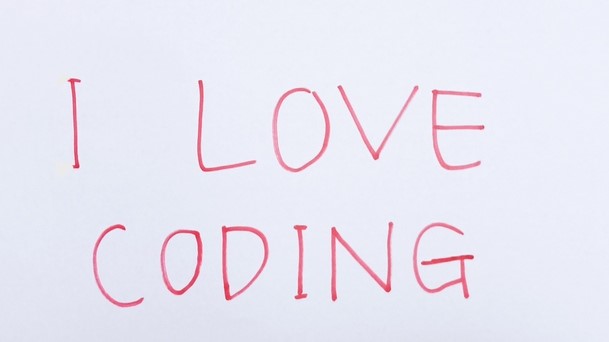 I LOVE
CODING